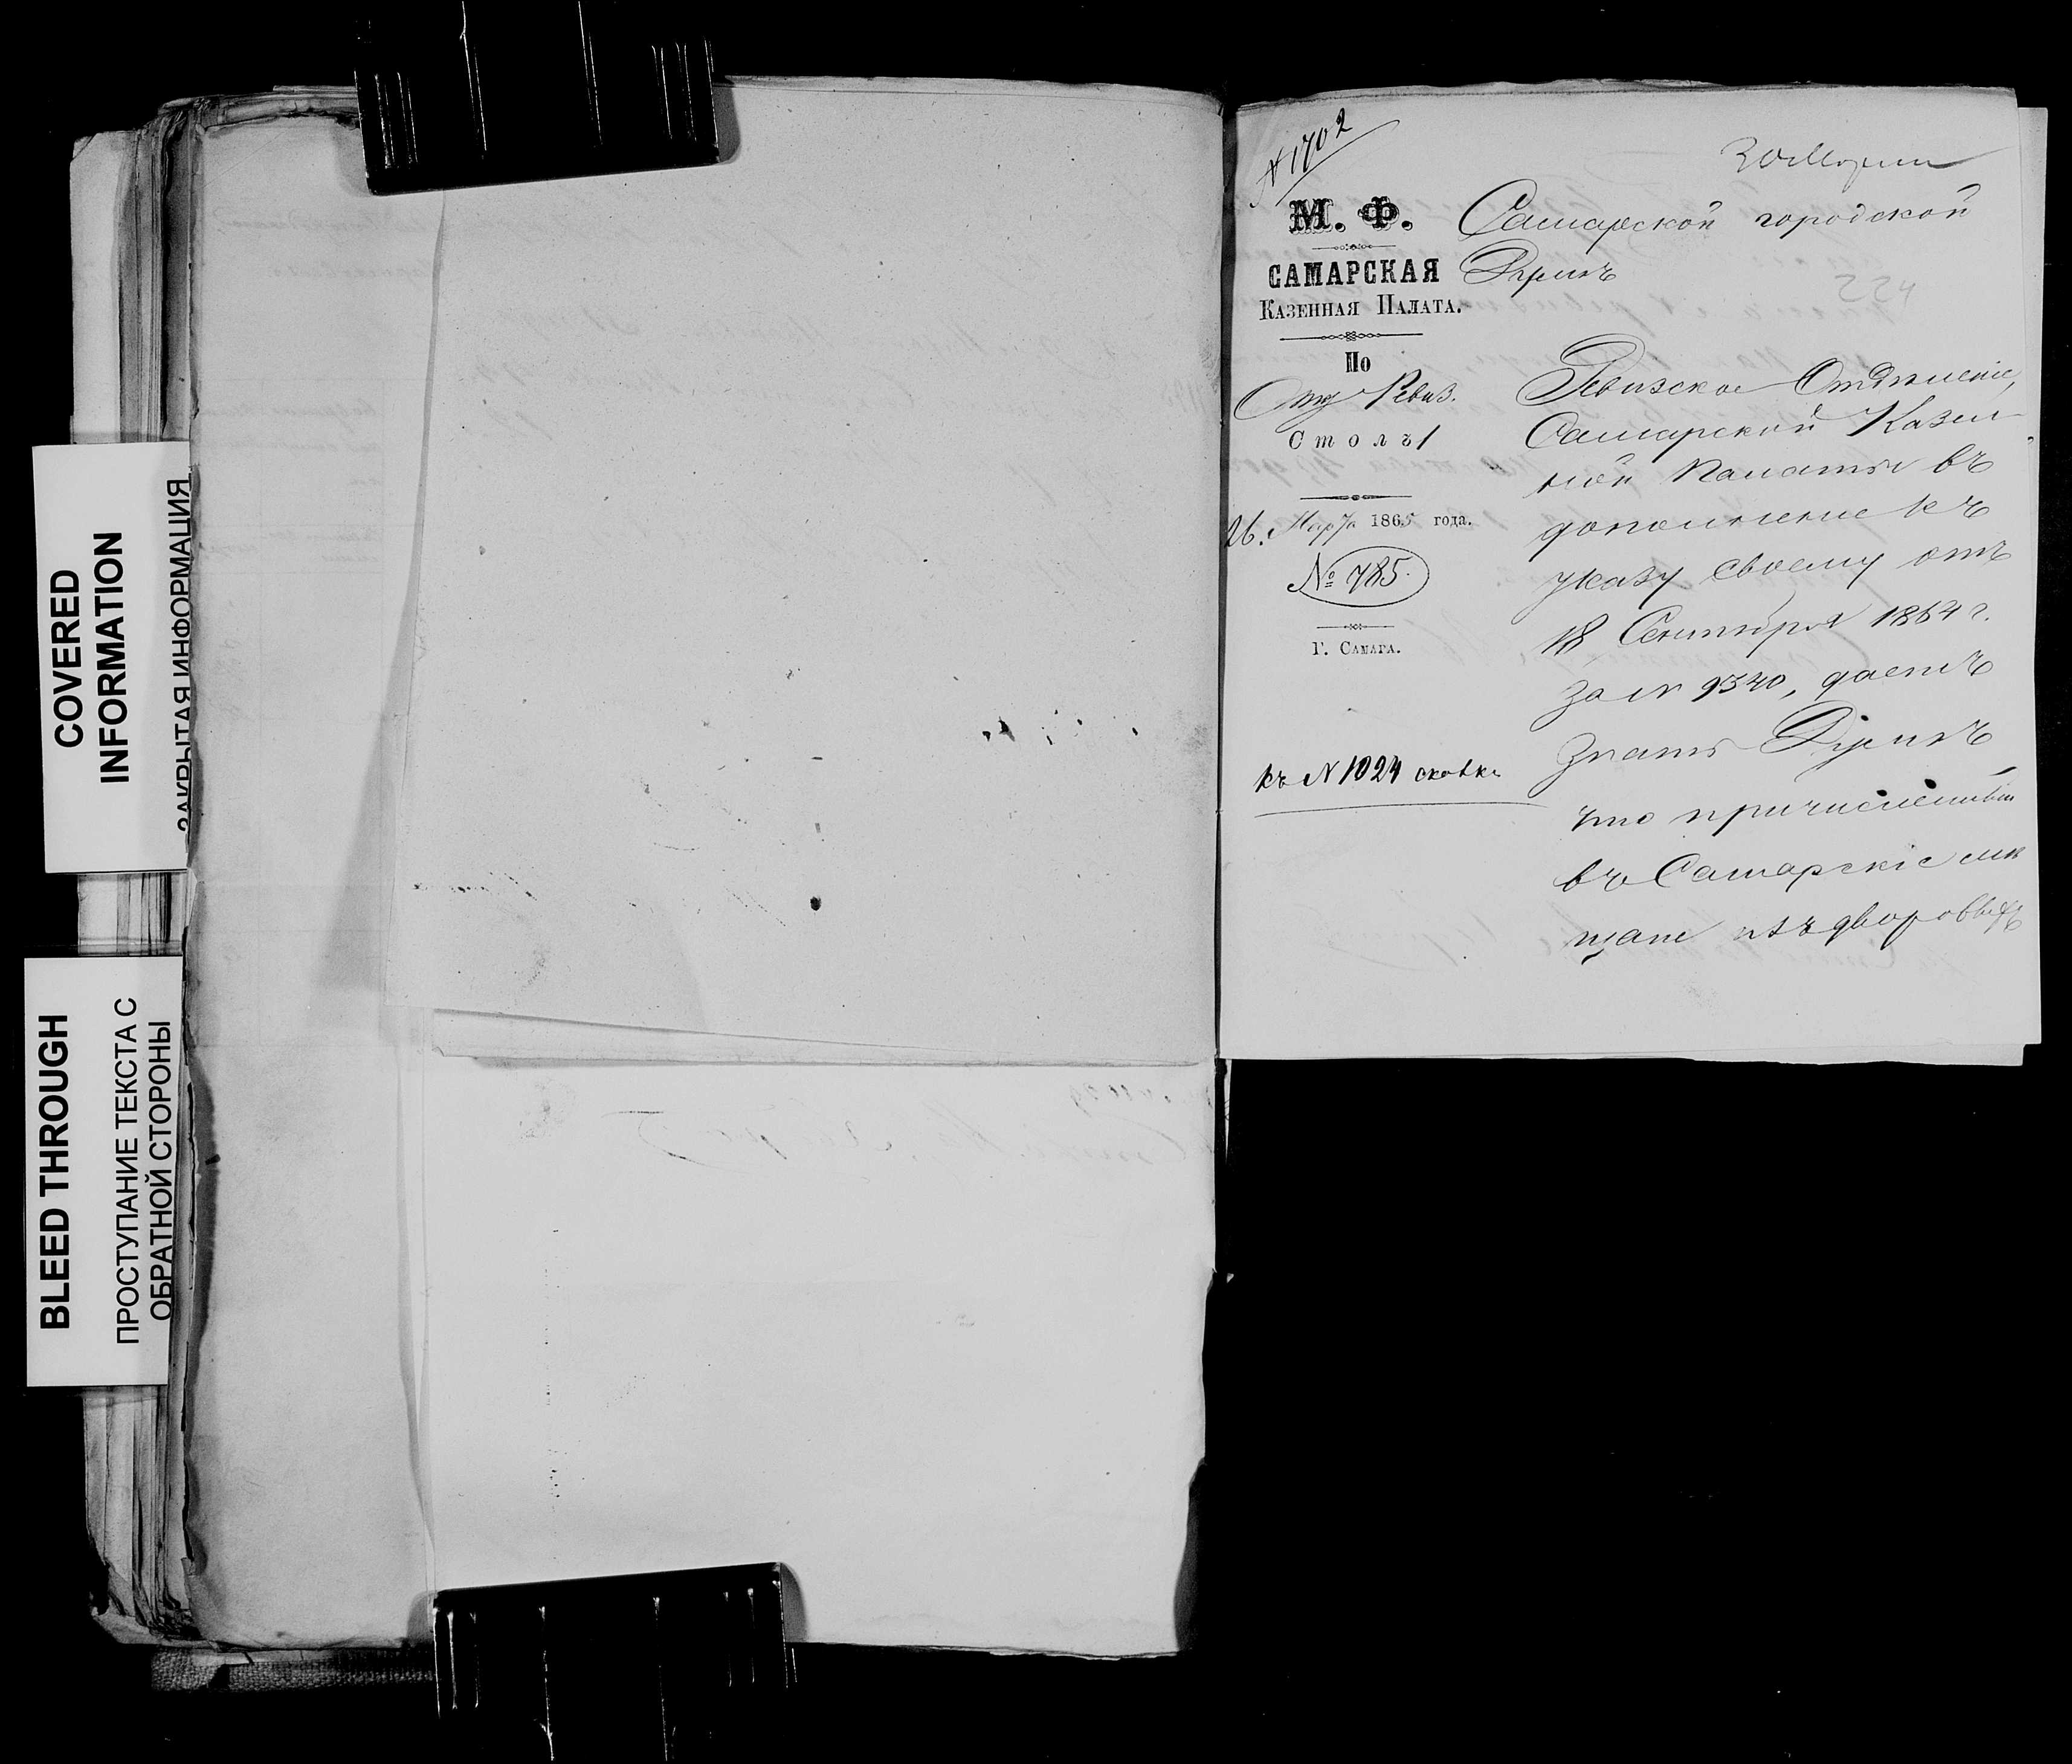 COVERED
INFORMATION
ЗАКРЫТАЯ ИНФОРМАЦИЯ
BLEED THROUGH
ПРОСТУПАНИЕ ТЕКСТА С
ОБРАТНОЙ СТОРОНЫ
№ 1702
30 Марта
М. Ф.
САМАРСКАЯ
КАЗЕННАЯ ПАЛАТА.
По
Отд Ревиз.
Столъ 1
26. Марта 1865 года.
№ 785.
Г. САМАРА.
къ № 1024
Самарской городской
Думѣ
224
Ревизское Отдѣленіе,
Самарской Казен
ной Палаты въ
дополненіе къ
указу своему отъ
18 Сентября 1864 г.
за № 9340, даетъ
знать Думѣ
что причисленный
въ Самарскіе мѣ
щане изъ дворовыхъ